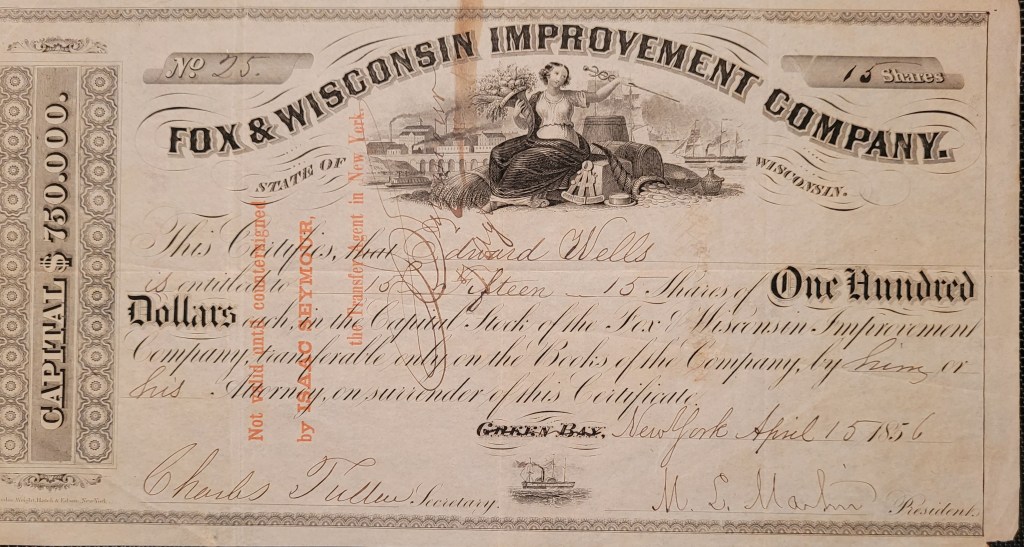 No 25.
15 Shares
FOX & WISCONSIN IMPROVEMENT COMPANY.
STATE OF WISCONSIN.
CAPITAL $ 750.000.
This Certifies, that Edward Wells
is entitled to 15 Fifteen 15 Shares of One Hundred
Dollars each, in the Capital Stock of the Fox & Wisconsin Improvement
Company, transferable only on the Books of the Company, by him or
his Attorney, on surrender of this Certificate.
GREEN BAY, New York April 15 1856
Charles Tullar Secretary.
M. L. Martin President.
Not valid until countersigned
by ISAAC SEYMOUR,
the Transfer Agent in New York.
Wright, Hatch & Edson, New York